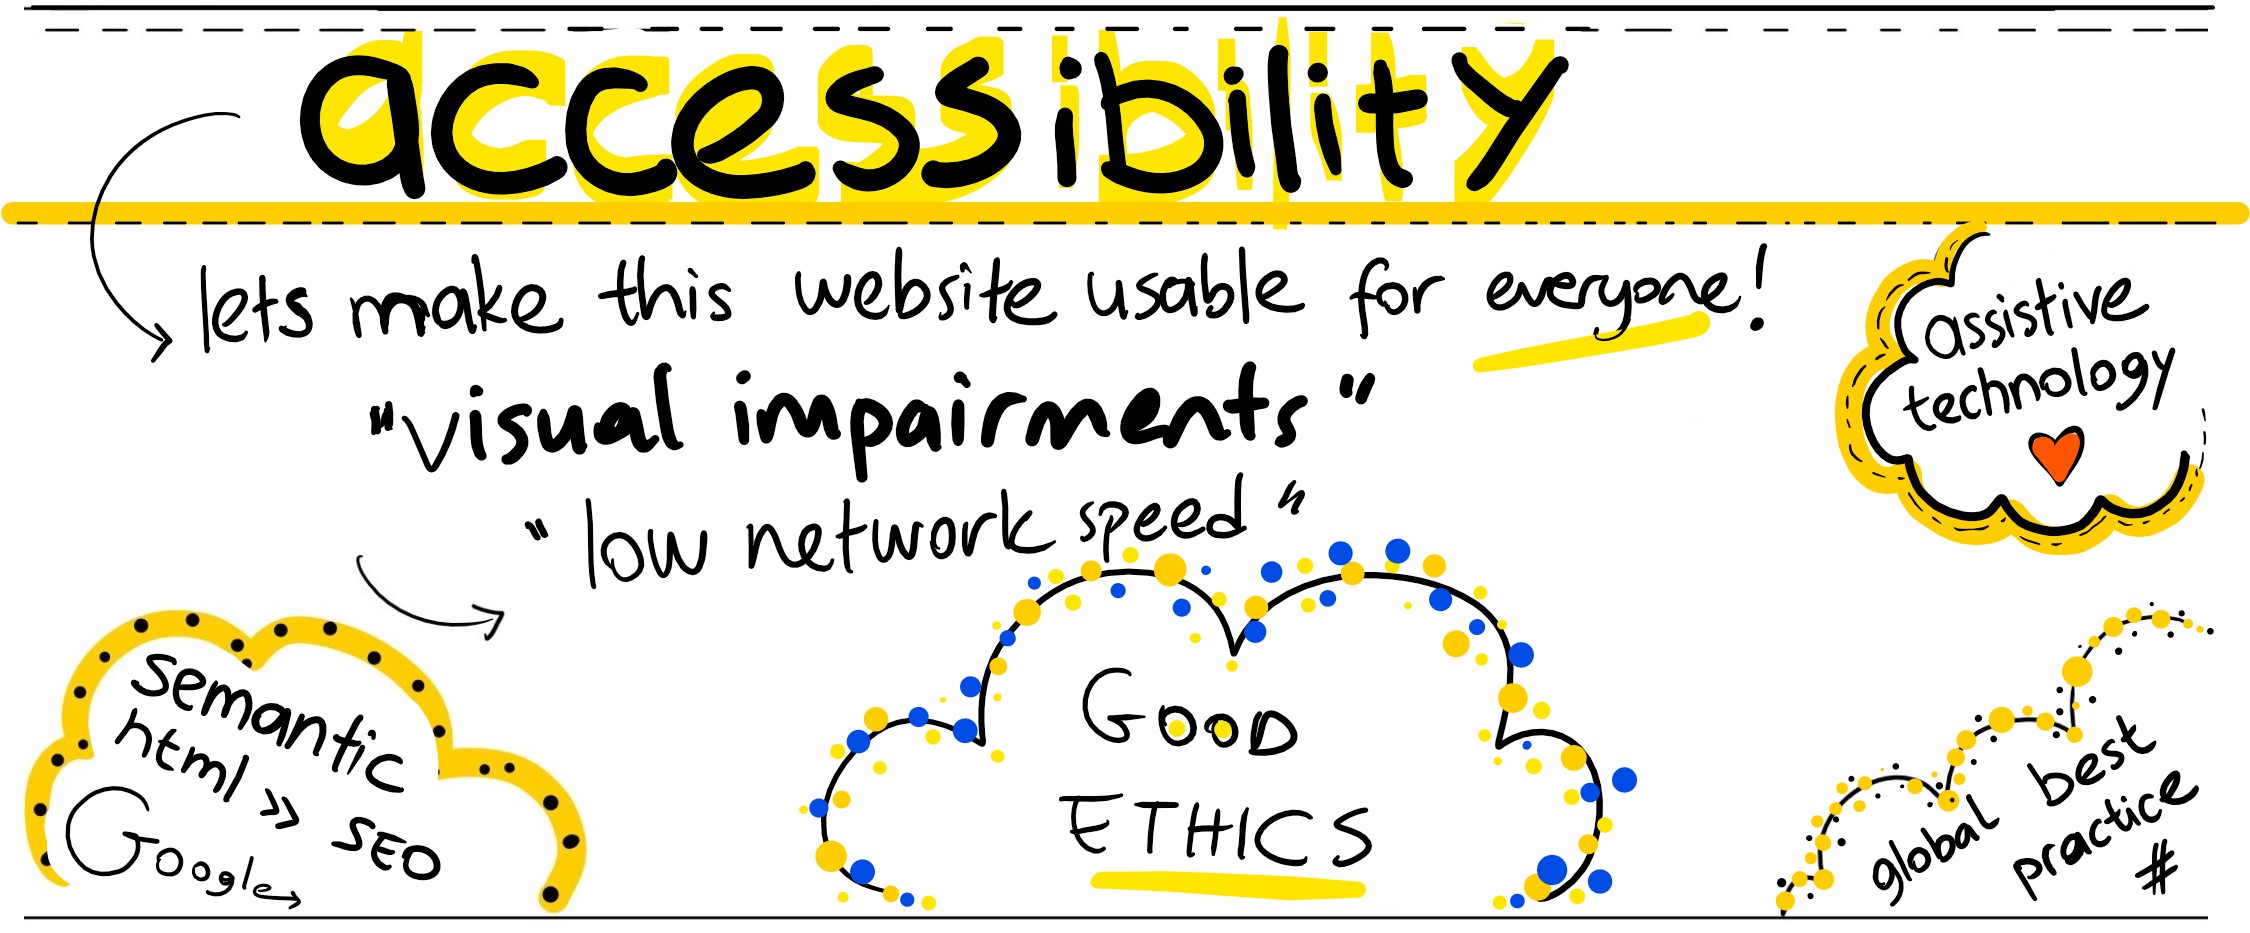 accessibility
lets make this website usable for everyone!
"visual impairments"
"low network speed"
assistive
technology
semantic
html >> SEO
Google
GOOD
ETHICS
global best
practice
#